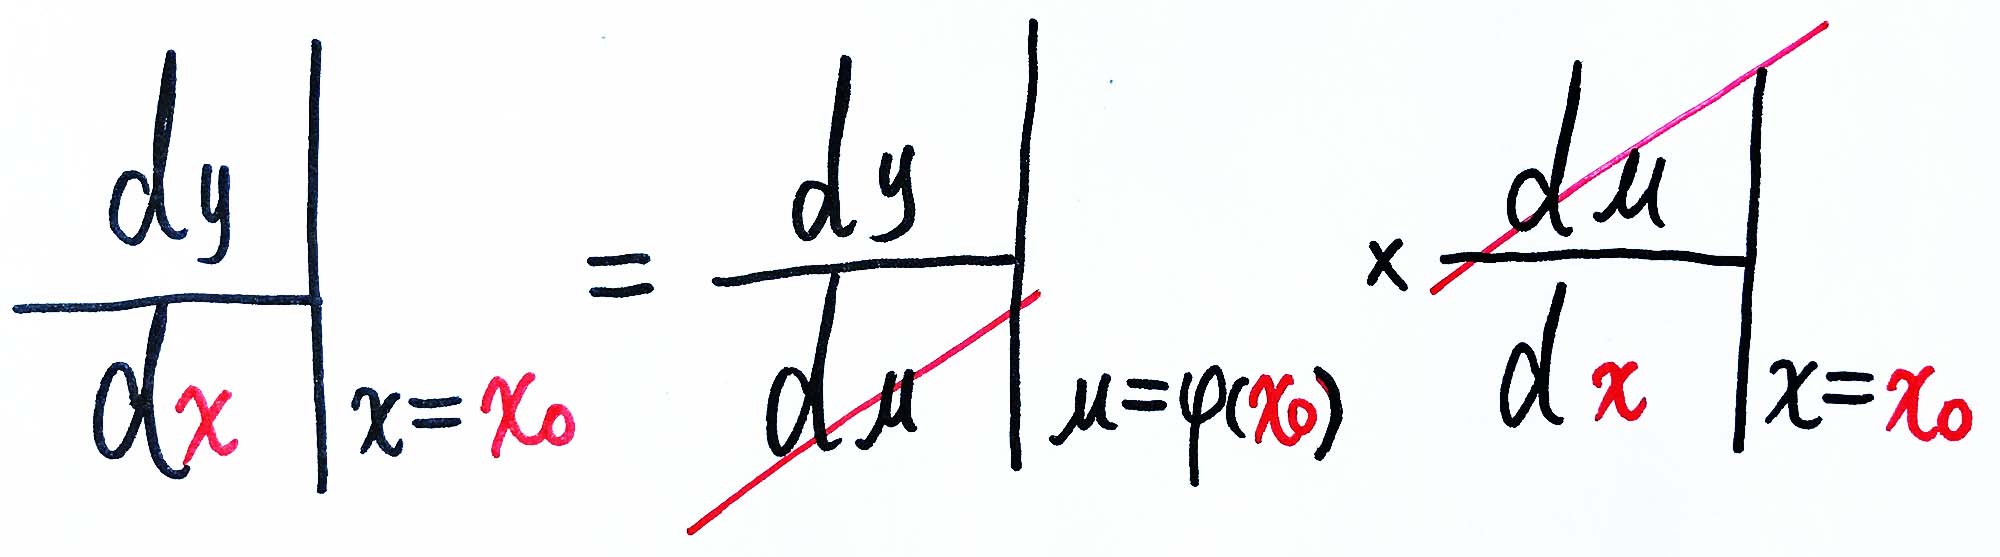 dy/dx | x=x₀ = dy/dμ | μ=φ(x₀) × dμ/dx | x=x₀